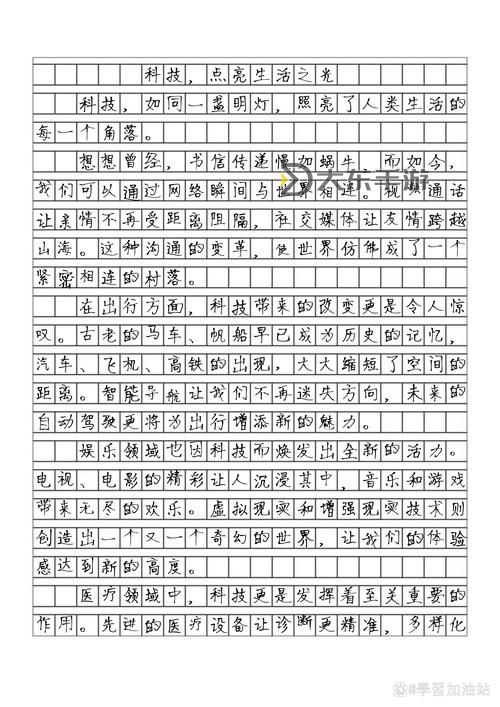 科技，点亮生活之光
科技，如同一盏明灯，照亮了人类生活的
每一个角落。
想想曾经，书信传递慢如蜗牛，而如今，
我们可以通过网络瞬间与世界相连。视频通话
让亲情不再受距离阻隔，社交媒体让友情跨越
山海。这种沟通的变革，使世界仿佛成了一个
紧密相连的村落。
在出行方面，科技带来的改变更是令人惊
叹。古老的马车、帆船早已成为历史的记忆，
汽车、飞机、高铁的出现，大大缩短了空间的
距离。智能导航让我们不再迷失方向，未来的
自动驾驶更将为出行增添新的魅力。
娱乐领域也因科技而焕发出全新的活力。
电视、电影的精彩让人沉浸其中，音乐和游戏
带来无尽的欢乐。虚拟现实和增强现实技术则
创造出一个又一个奇幻的世界，让我们的体验
感达到新的高度。
医疗领域中，科技更是发挥着至关重要的
作用。先进的医疗设备让诊断更精准，多样化
大东手游
@學習加油站